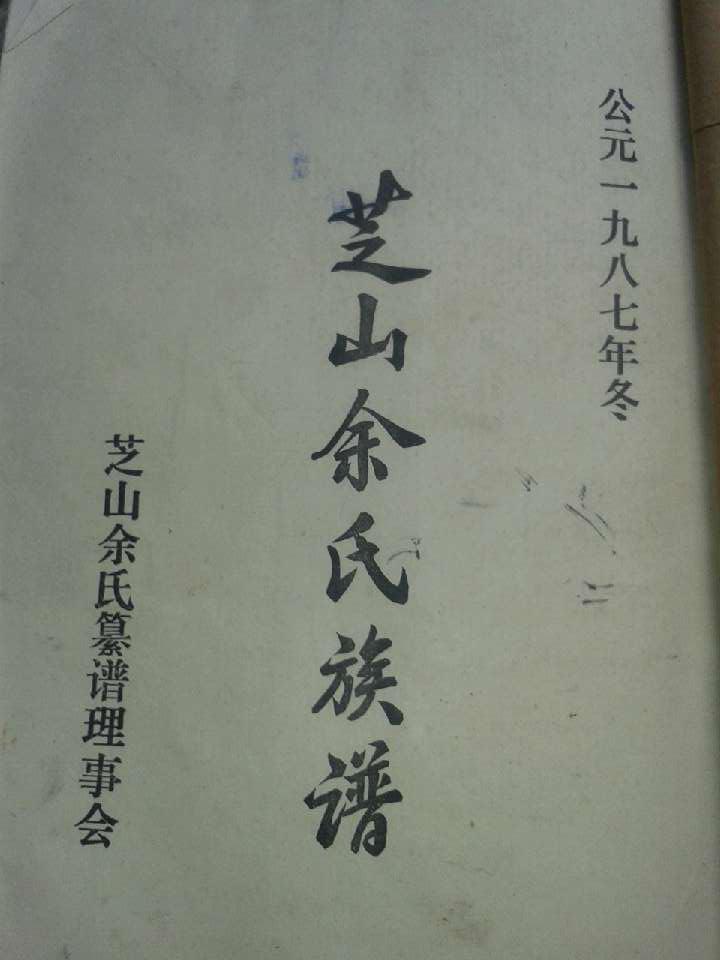 公元一九八七年冬
芝山余氏族谱
芝山余氏纂谱理事会